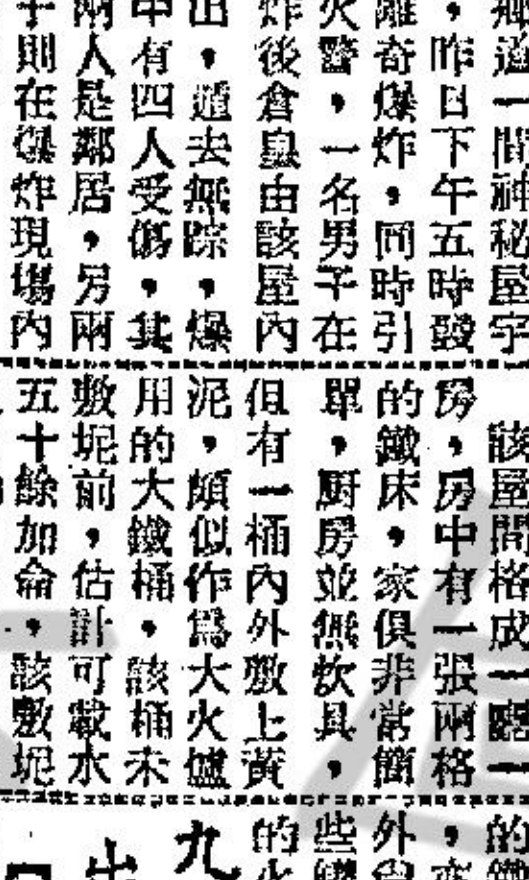 道一間神秘屋宇
，昨日下午五時許
離奇爆炸，同時引
火警，一名男子在
炸後倉皇由該屋內
出，遁去無踪，爆
中有四人受傷，其
兩人是鄰居，另兩
子則在爆炸現場內
該屋間格成一廳一
房，房中有一張兩格
的鐵床，家俱非常簡
單，廚房並無炊具，
但有一桶內外敷上黃
泥，頗似作為大火爐
用的大鐵桶，該桶未
敷坭前，估計可載水
五十餘加侖，該敷坭
的
，
外
些
的
九